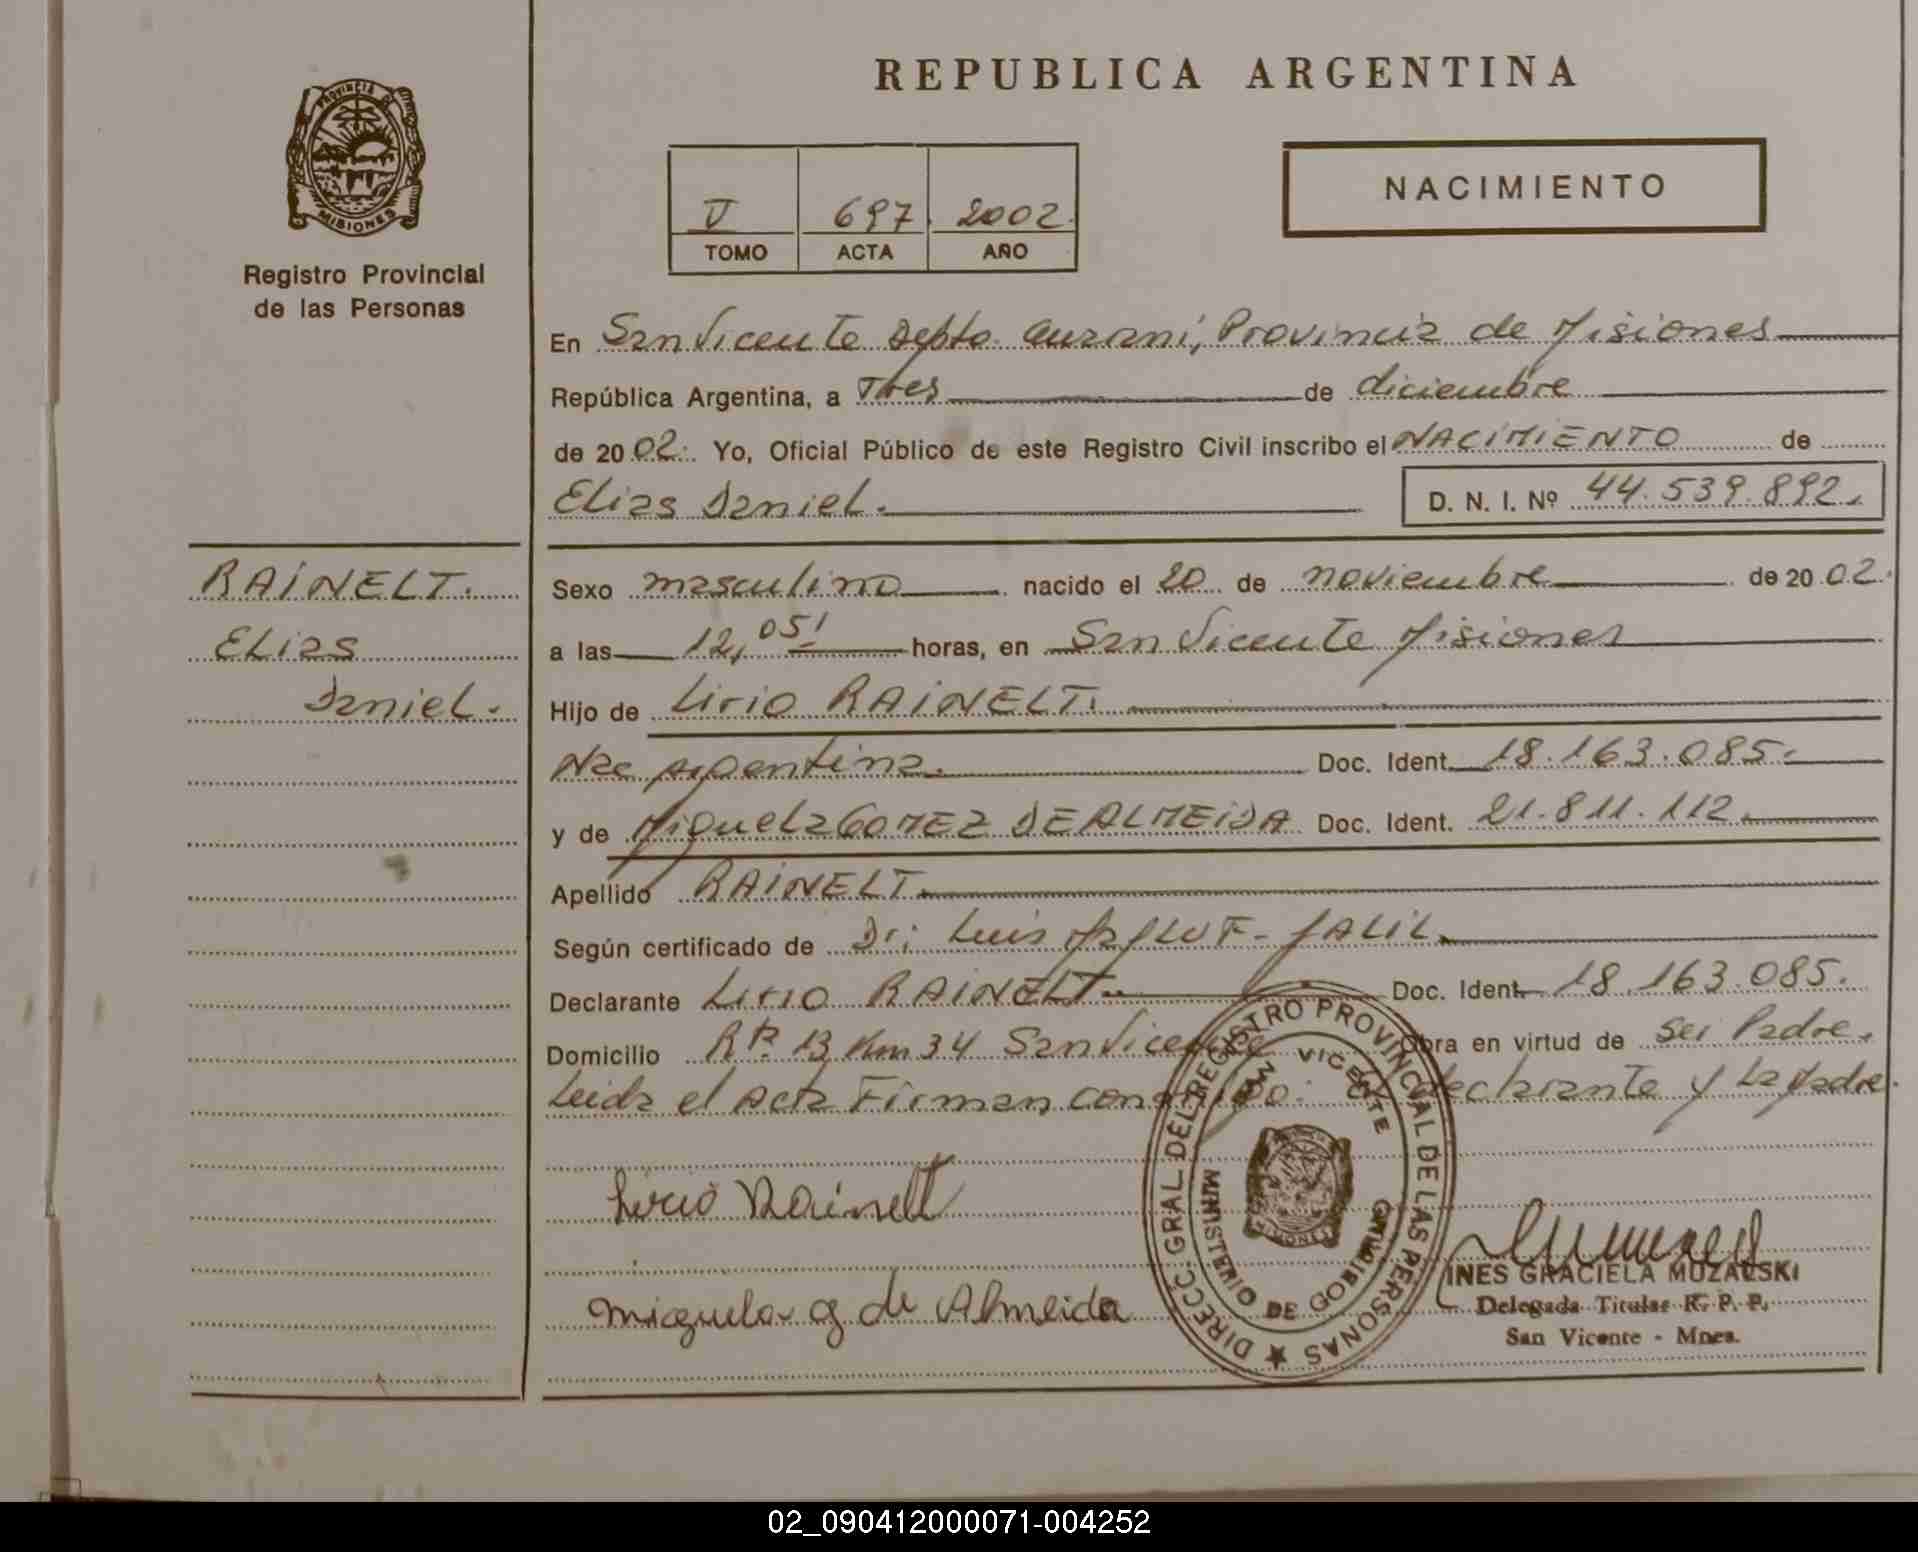 REPUBLICA ARGENTINA
PROVINCIA DE
MISIONES
Registro Provincial
de las Personas
V 697 2002
TOMO ACTA AÑO
NACIMIENTO
En San Vicente Depto. Guarani, Provincia de Misiones
República Argentina, a Tres de diciembre
de 2002. Yo, Oficial Público de este Registro Civil inscribo el NACIMIENTO de
Elias Daniel. D. N. I. Nº 44.539.892.
RAINELT.
Elias
Daniel.
Sexo masculino nacido el 20 de noviembre de 2002.
a las 12,05' horas, en San Vicente Misiones
Hijo de Lirio RAINELT.
Nac Argentina. Doc. Ident. 18.163.085.
y de Miguela GOMEZ DE ALMEIDA Doc. Ident. 21.811.112.
Apellido RAINELT
Según certificado de Dr: Luis JALIL
Declarante Lirio RAINELT. Doc. Ident. 18.163.085.
Domicilio Rta. 13 Km 34 San Vicente Obra en virtud de ser Padre.
Leida el Acta Firman conmigo: el declarante y la Madre.
Lirio Rainelt
Miguela g de Almeida
DIRECC. GRAL DEL REGISTRO PROVINCIAL DE LAS PERSONAS
SAN VICENTE
MINISTERIO DE GOBIERNO
INES GRACIELA MUZALSKI
Delegada Titular R. P. P.
San Vicente - Mnes.
02_090412000071-004252